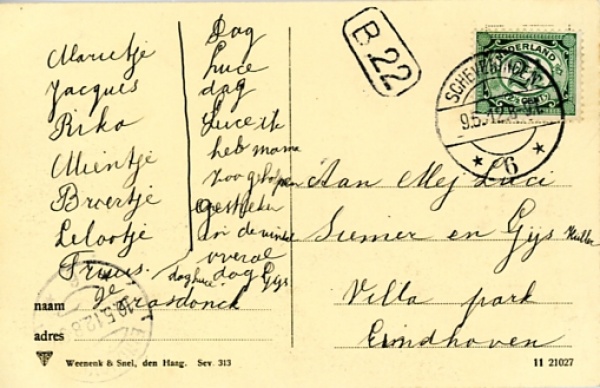 B.22
NEDERLAND
2½ CENT
SCHEVENINGEN
9.5.12.8
6
Marietje
Jacques
Riko
Mientje
Broertje
Lelootje
Truus.
Dag
Luce
dag
Luce ik
heb mama
zoo geholpen
gesteken
in de winkel
overal
dag Gijs
dag luce.
de Grasdonck
Aan Mej Luci
Siemer en Gijs
Villa park
Eindhoven
10.5.12.8
naam
adres
Weenenk & Snel, den Haag. Sev. 313
11 21027